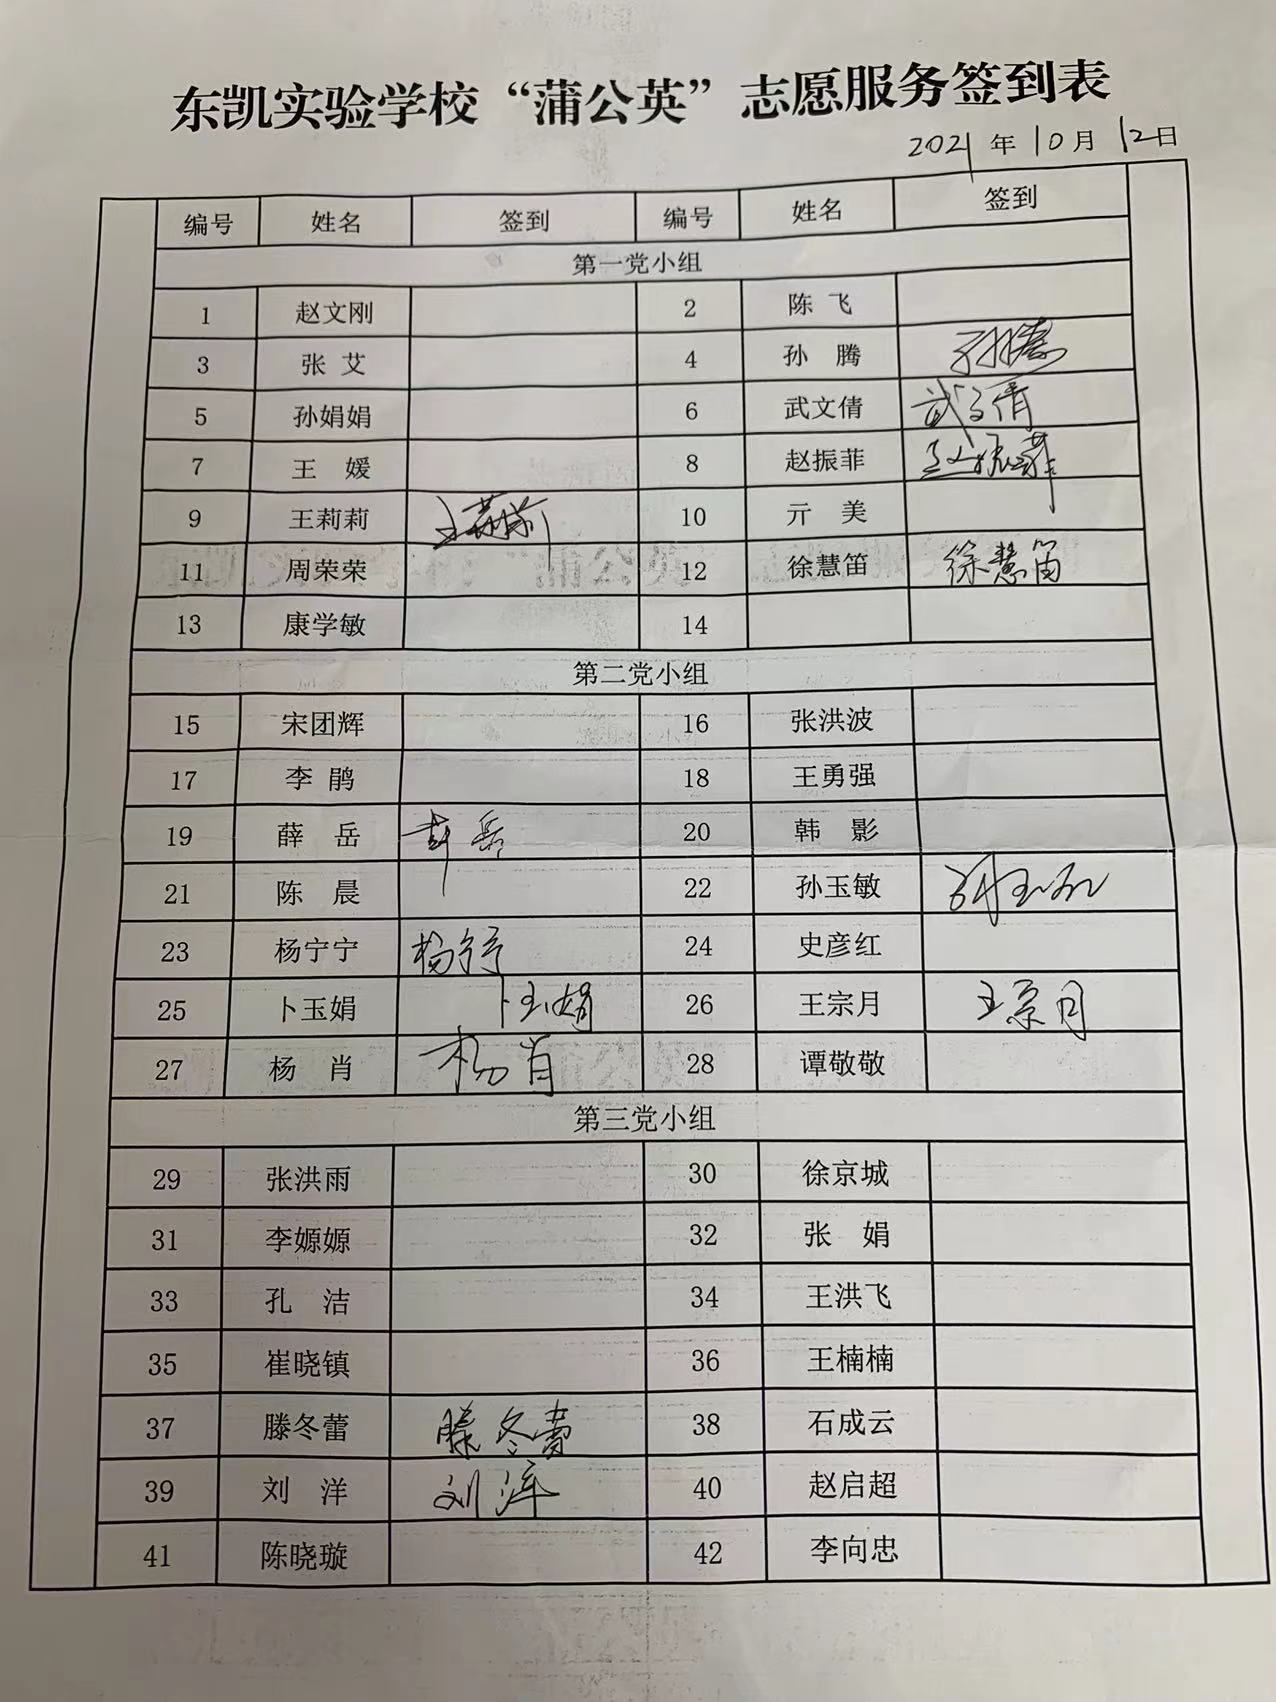 东凯实验学校“蒲公英”志愿服务签到表
2021年10月12日
编号 姓名 签到 编号 姓名 签到
第一党小组
1 赵文刚 2 陈飞
3 张艾 4 孙腾 孙腾
5 孙娟娟 6 武文倩 武文倩
7 王媛 8 赵振菲 赵振菲
9 王莉莉 王莉莉 10 亓美
11 周荣荣 12 徐慧笛 徐慧笛
13 康学敏 14
第二党小组
15 宋团辉 16 张洪波
17 李鹃 18 王勇强
19 薛岳 薛岳 20 韩影
21 陈晨 22 孙玉敏 孙玉敏
23 杨宁宁 杨宁宁 24 史彦红
25 卜玉娟 卜玉娟 26 王宗月 王宗月
27 杨肖 杨肖 28 谭敬敬
第三党小组
29 张洪雨 30 徐京城
31 李嫄嫄 32 张娟
33 孔洁 34 王洪飞
35 崔晓镇 36 王楠楠
37 滕冬蕾 滕冬蕾 38 石成云
39 刘洋 刘洋 40 赵启超
41 陈晓璇 42 李向忠